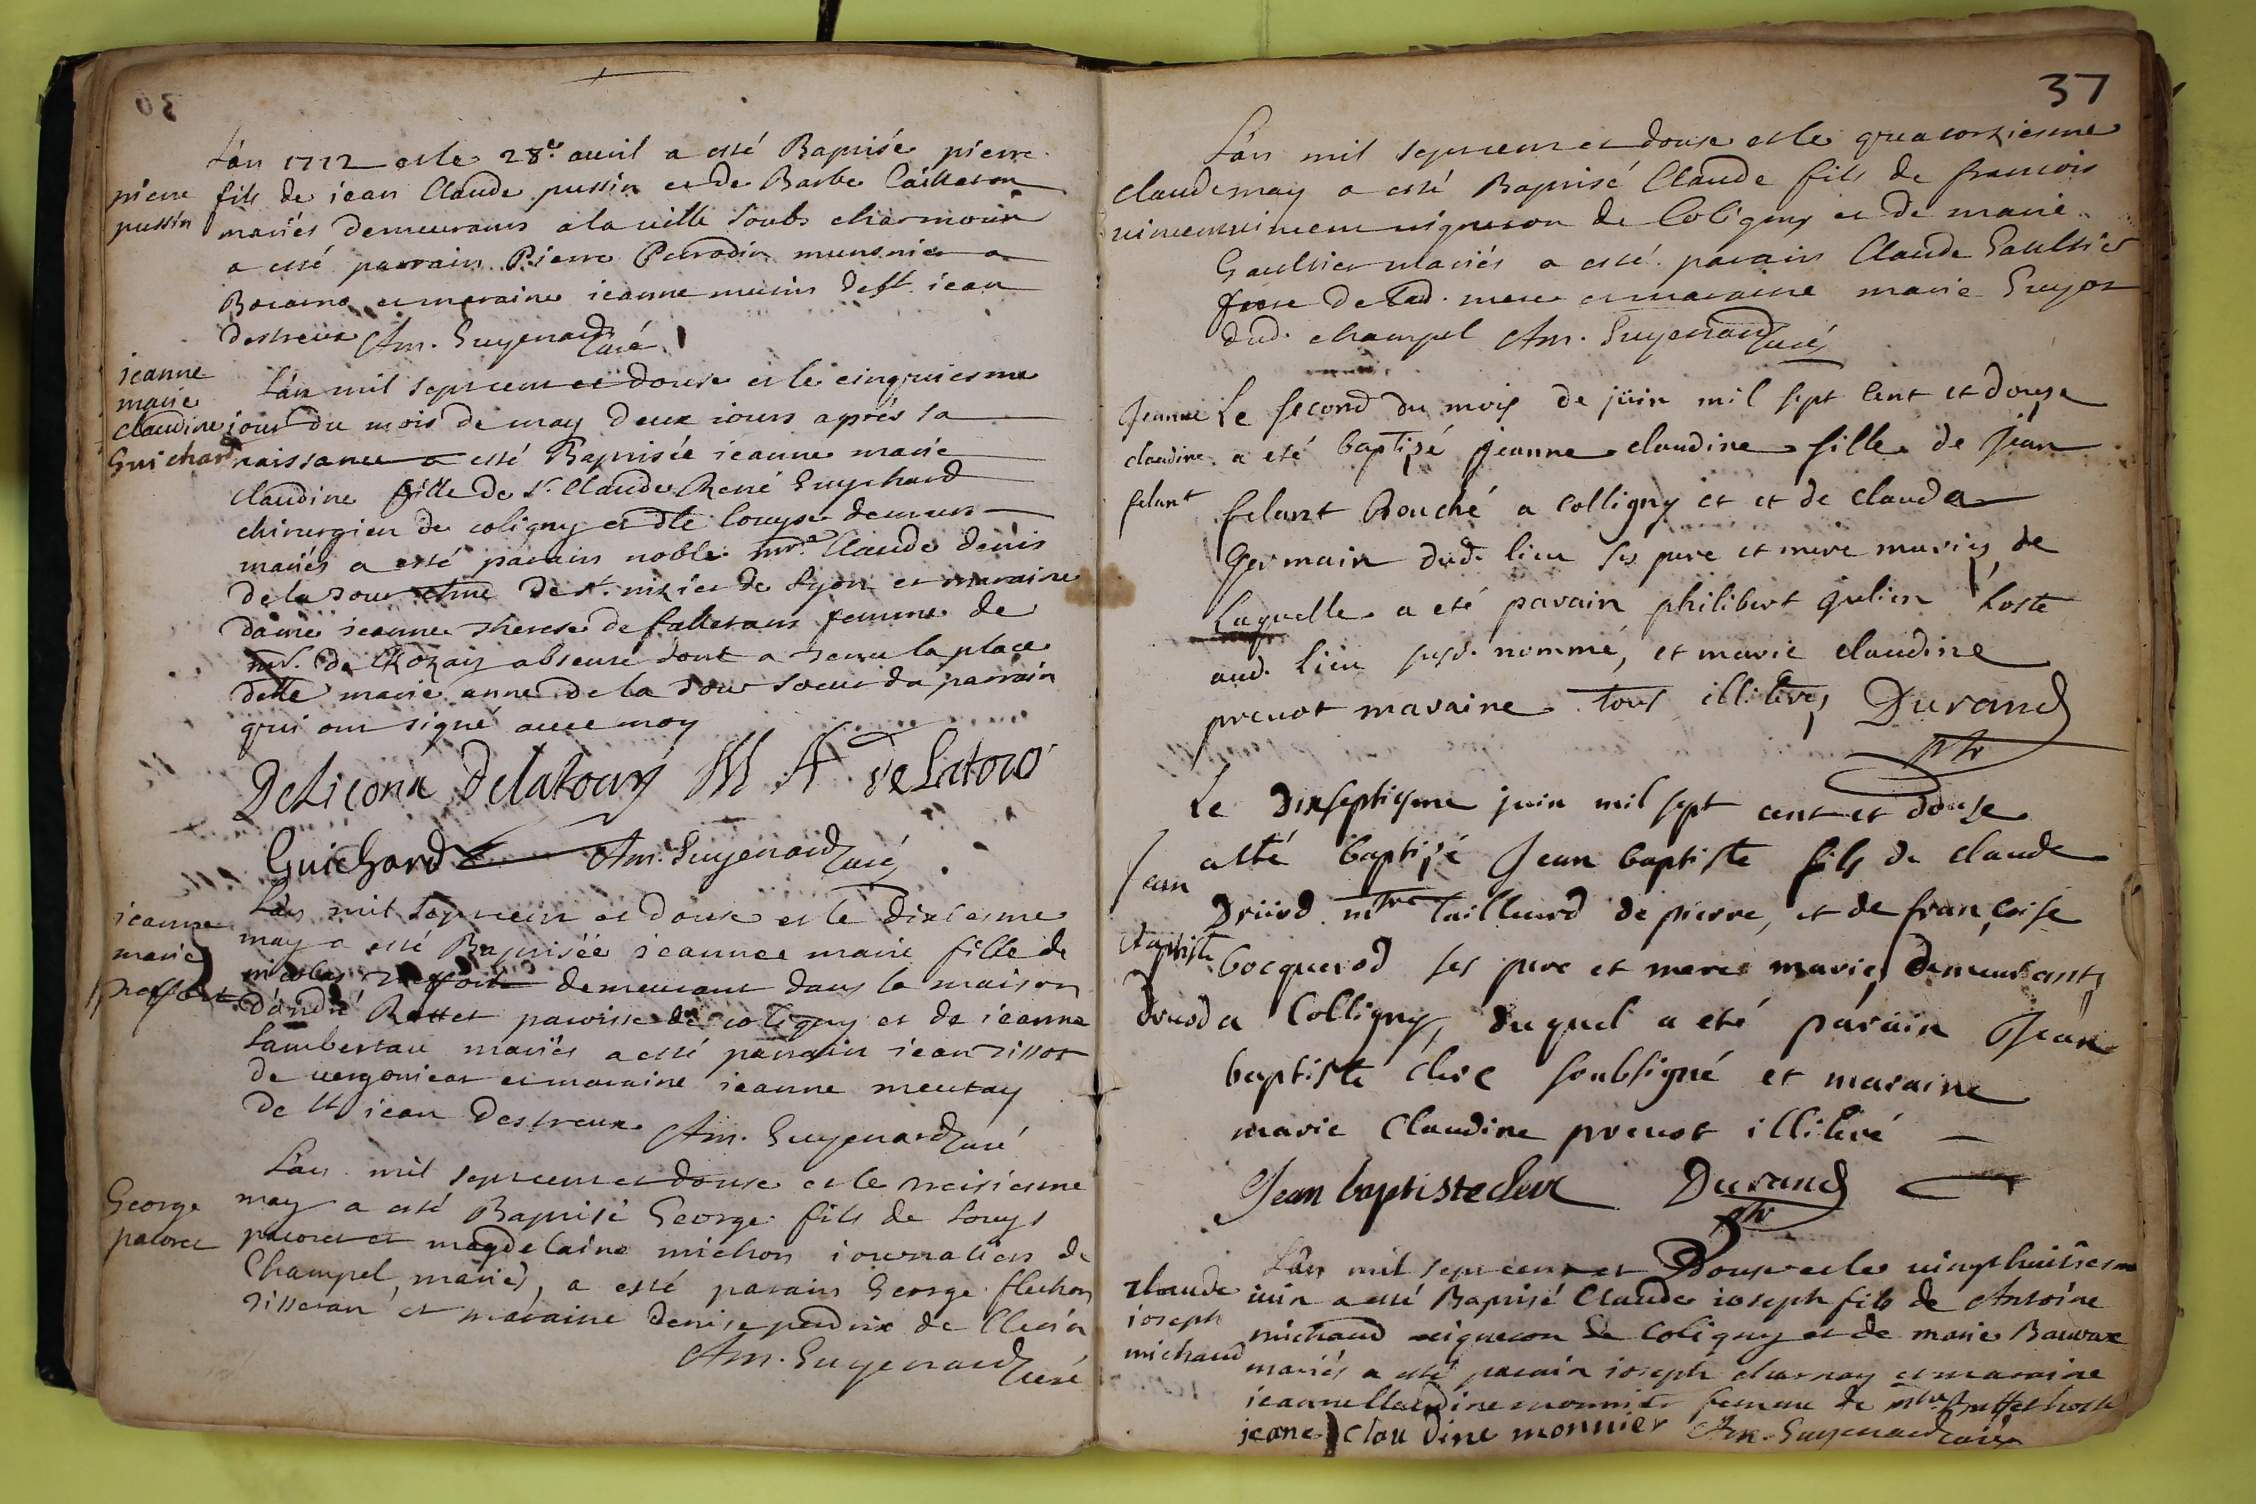 L'an 1712 et le 28e auril a esté Baptisé pierre
pierre fils de iean Claude pussin et de Barbe Cailleton
pussin mariés demeurans a la ville soubs charmoux
a esté parrain Pierre Perrodin munsnier a
et maraine ieanne de st iean
destreux Am. Guyenard Curé
ieanne
marie
claudine
Guichard
L'an mil sept cent et douse et le cinquiesme
iour du mois de may deux iours aprés sa
naissance a esté Baptisée ieanne marie
claudine fille de Sr Claude René Guychard
chirurgien de coligny et dlle louyse
mariés a esté parain noble mre Claude denis
de la tour de st. nizier de Lyon et maraine
dame ieanne therese de falletans femme de
mr. de absente dont a tenu la place
delle marie anne de la tour soeur du parrain
qui ont signé avec moy
Delatour M A De Latour
Guichard Am. Guyenard Curé
ieanne
marie
L'an mil sept cent et douse et le dixiesme
may a esté Baptisée ieanne marie fille de
nicolas demeurant dans la maison
d'andré Rottet paroisse de coligny et de ieanne
Lambertau mariés a esté parrain iean tissot
de et maraine ieanne
de st iean destreux Am. Guyenard Curé
George
patoret
L'an mil sept cent et douse et le treisiesme
may a esté Baptisé George fils de Louys
patoret et magdelaine michon iournaliers de
Champel, mariés, a esté parain George flechon
tisseran et maraine denise perdrix de
Am. Guyenard Curé
37
L'an mil sept cent et douse et le quatorziesme
claude may a esté Baptisé Claude fils de francois
vincent vincent vigneron de Coligny et de marie
Gaultier mariés a esté parain Claude Gaultier
frere de lad. mere et maraine marie Guyot
dud. champel Am. Guyenard Curé
Jeanne
claudine
felant
Le second du mois de juin mil sept cent et douse
a eté baptisé jeanne claudine fille de Jean
felant Bouché a colligny et et de clauda
Germain dud. lieu ses pere et mere mariés, de
Laquelle a eté parain philibert gulien hoste
aud. lieu susd. nommé, et marie claudine
preuost maraine tous illiterés Durand
ptr
Jean
baptiste
Druod
Le dixseptiesme juin mil sept cent et douse
a eté baptisé Jean baptiste fils de claude
Druod mtre tailleurd de pierre, et de françoise
bocquerod ses pere et mere mariés demeurants
a Colligny, duquel a eté parain Jean
baptiste clerc soubsigné et maraine
marie Claudine preuost illiteré
Jean baptiste clerc Durand
ptr
claude
ioseph
michaud
L'an mil sept cent et Douse et le vingthuitiesme
iuin a esté Baptisé Claude ioseph fils de Antoine
michaud vigneron de Coligny et de marie
mariés a esté parain ioseph charnay et maraine
ieanne Claudine monnier femme de mtre hoste
jeane clau dine monnier Am. Guyenard Curé